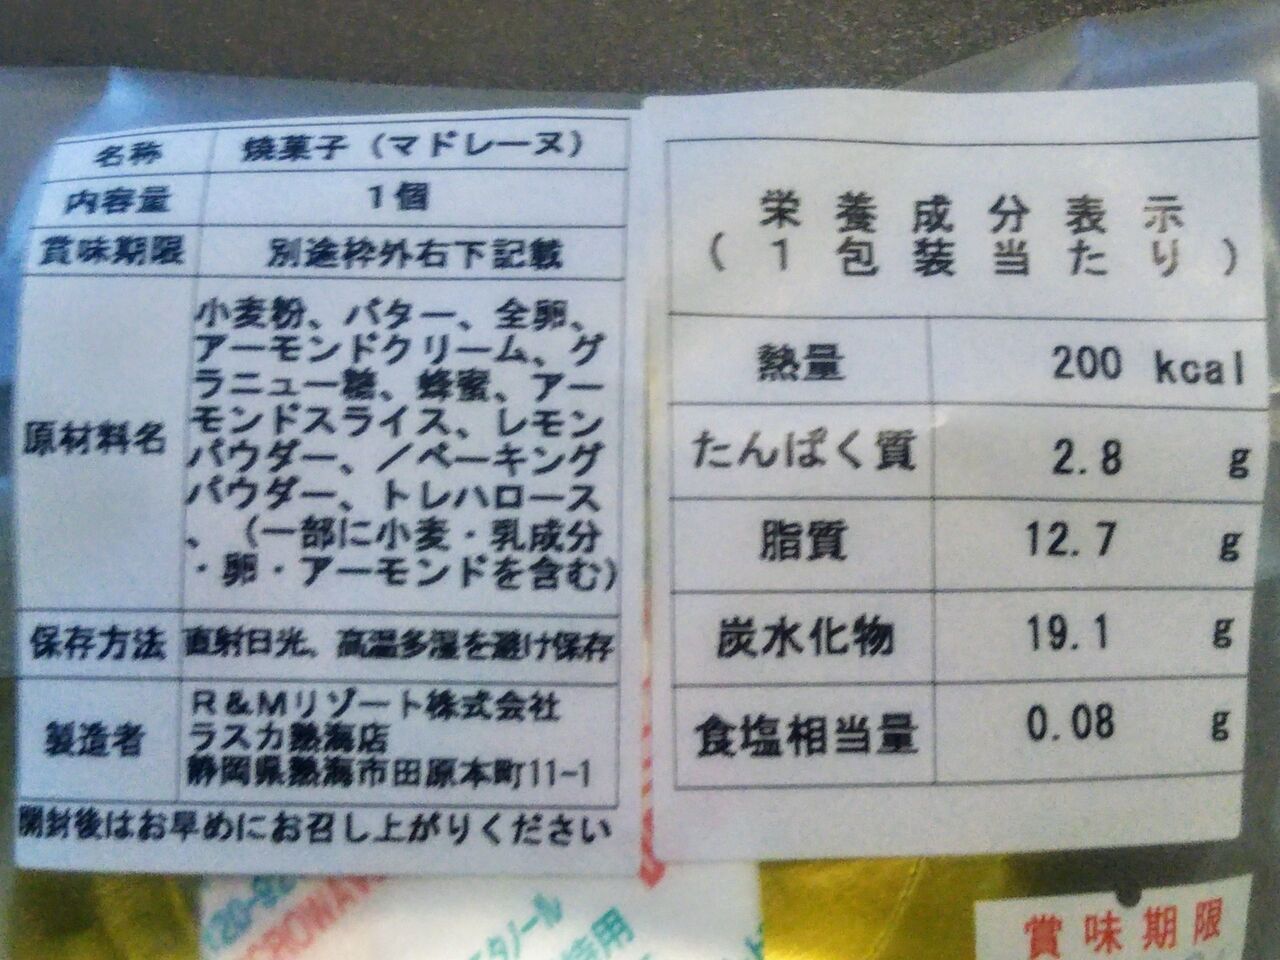 名称 焼菓子（マドレーヌ）
内容量 1個
賞味期限 別途枠外右下記載
原材料名 小麦粉、バター、全卵、
アーモンドクリーム、グ
ラニュー糖、蜂蜜、アー
モンドスライス、レモン
パウダー、／ベーキング
パウダー、トレハロース
、（一部に小麦・乳成分
・卵・アーモンドを含む）
保存方法 直射日光、高温多湿を避け保存
製造者 R&Mリゾート株式会社
ラスカ熱海店
静岡県熱海市田原本町11-1
開封後はお早めにお召し上がりください
栄養成分表示
（1包装当たり）
熱量 200 kcal
たんぱく質 2.8 g
脂質 12.7 g
炭水化物 19.1 g
食塩相当量 0.08 g
賞味期限